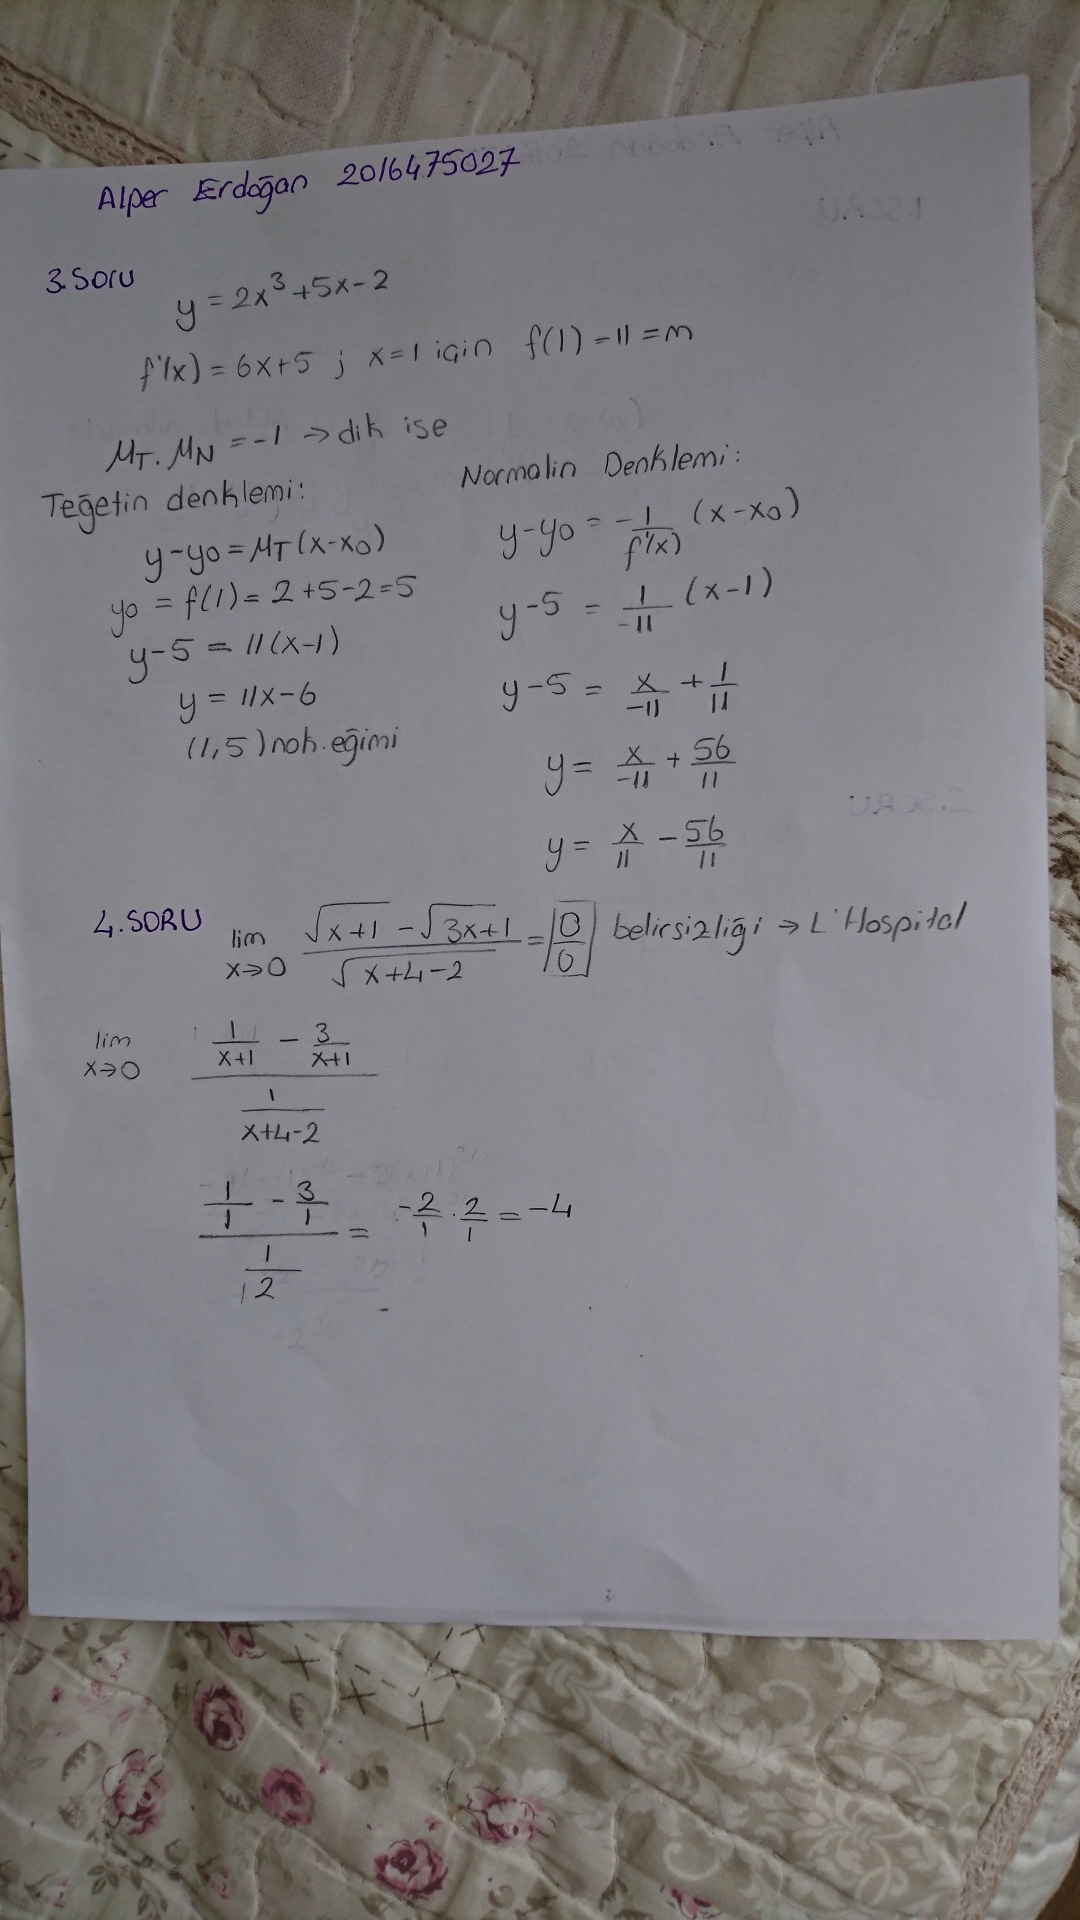 Alper Erdoğan 2016475027
3.Soru
y = 2x³+5x-2
f'(x) = 6x+5 ; x=1 için f(1)-11=m
MT. MN = -1 → dik ise
Teğetin denklemi:
y-yo = MT(x-xo)
yo = f(1) = 2+5-2=5
y-5 = 11(x-1)
y = 11x-6
(1,5) nok. eğimi
Normalin Denklemi:
y-yo = -1/f'(x) (x-xo)
y-5 = 1/-11 (x-1)
y-5 = x/-11 + 1/11
y = x/-11 + 56/11
y = x/11 - 56/11
4.SORU lim x→0 (√x+1 - √3x+1)/(√x+4-2) = |0/0| belirsizliği → L'Hospital
lim x→0 (1/x+1 - 3/x+1)/(1/x+4-2)
(1/1 - 3/1)/(1/2) = -2/1 . 2/1 = -4